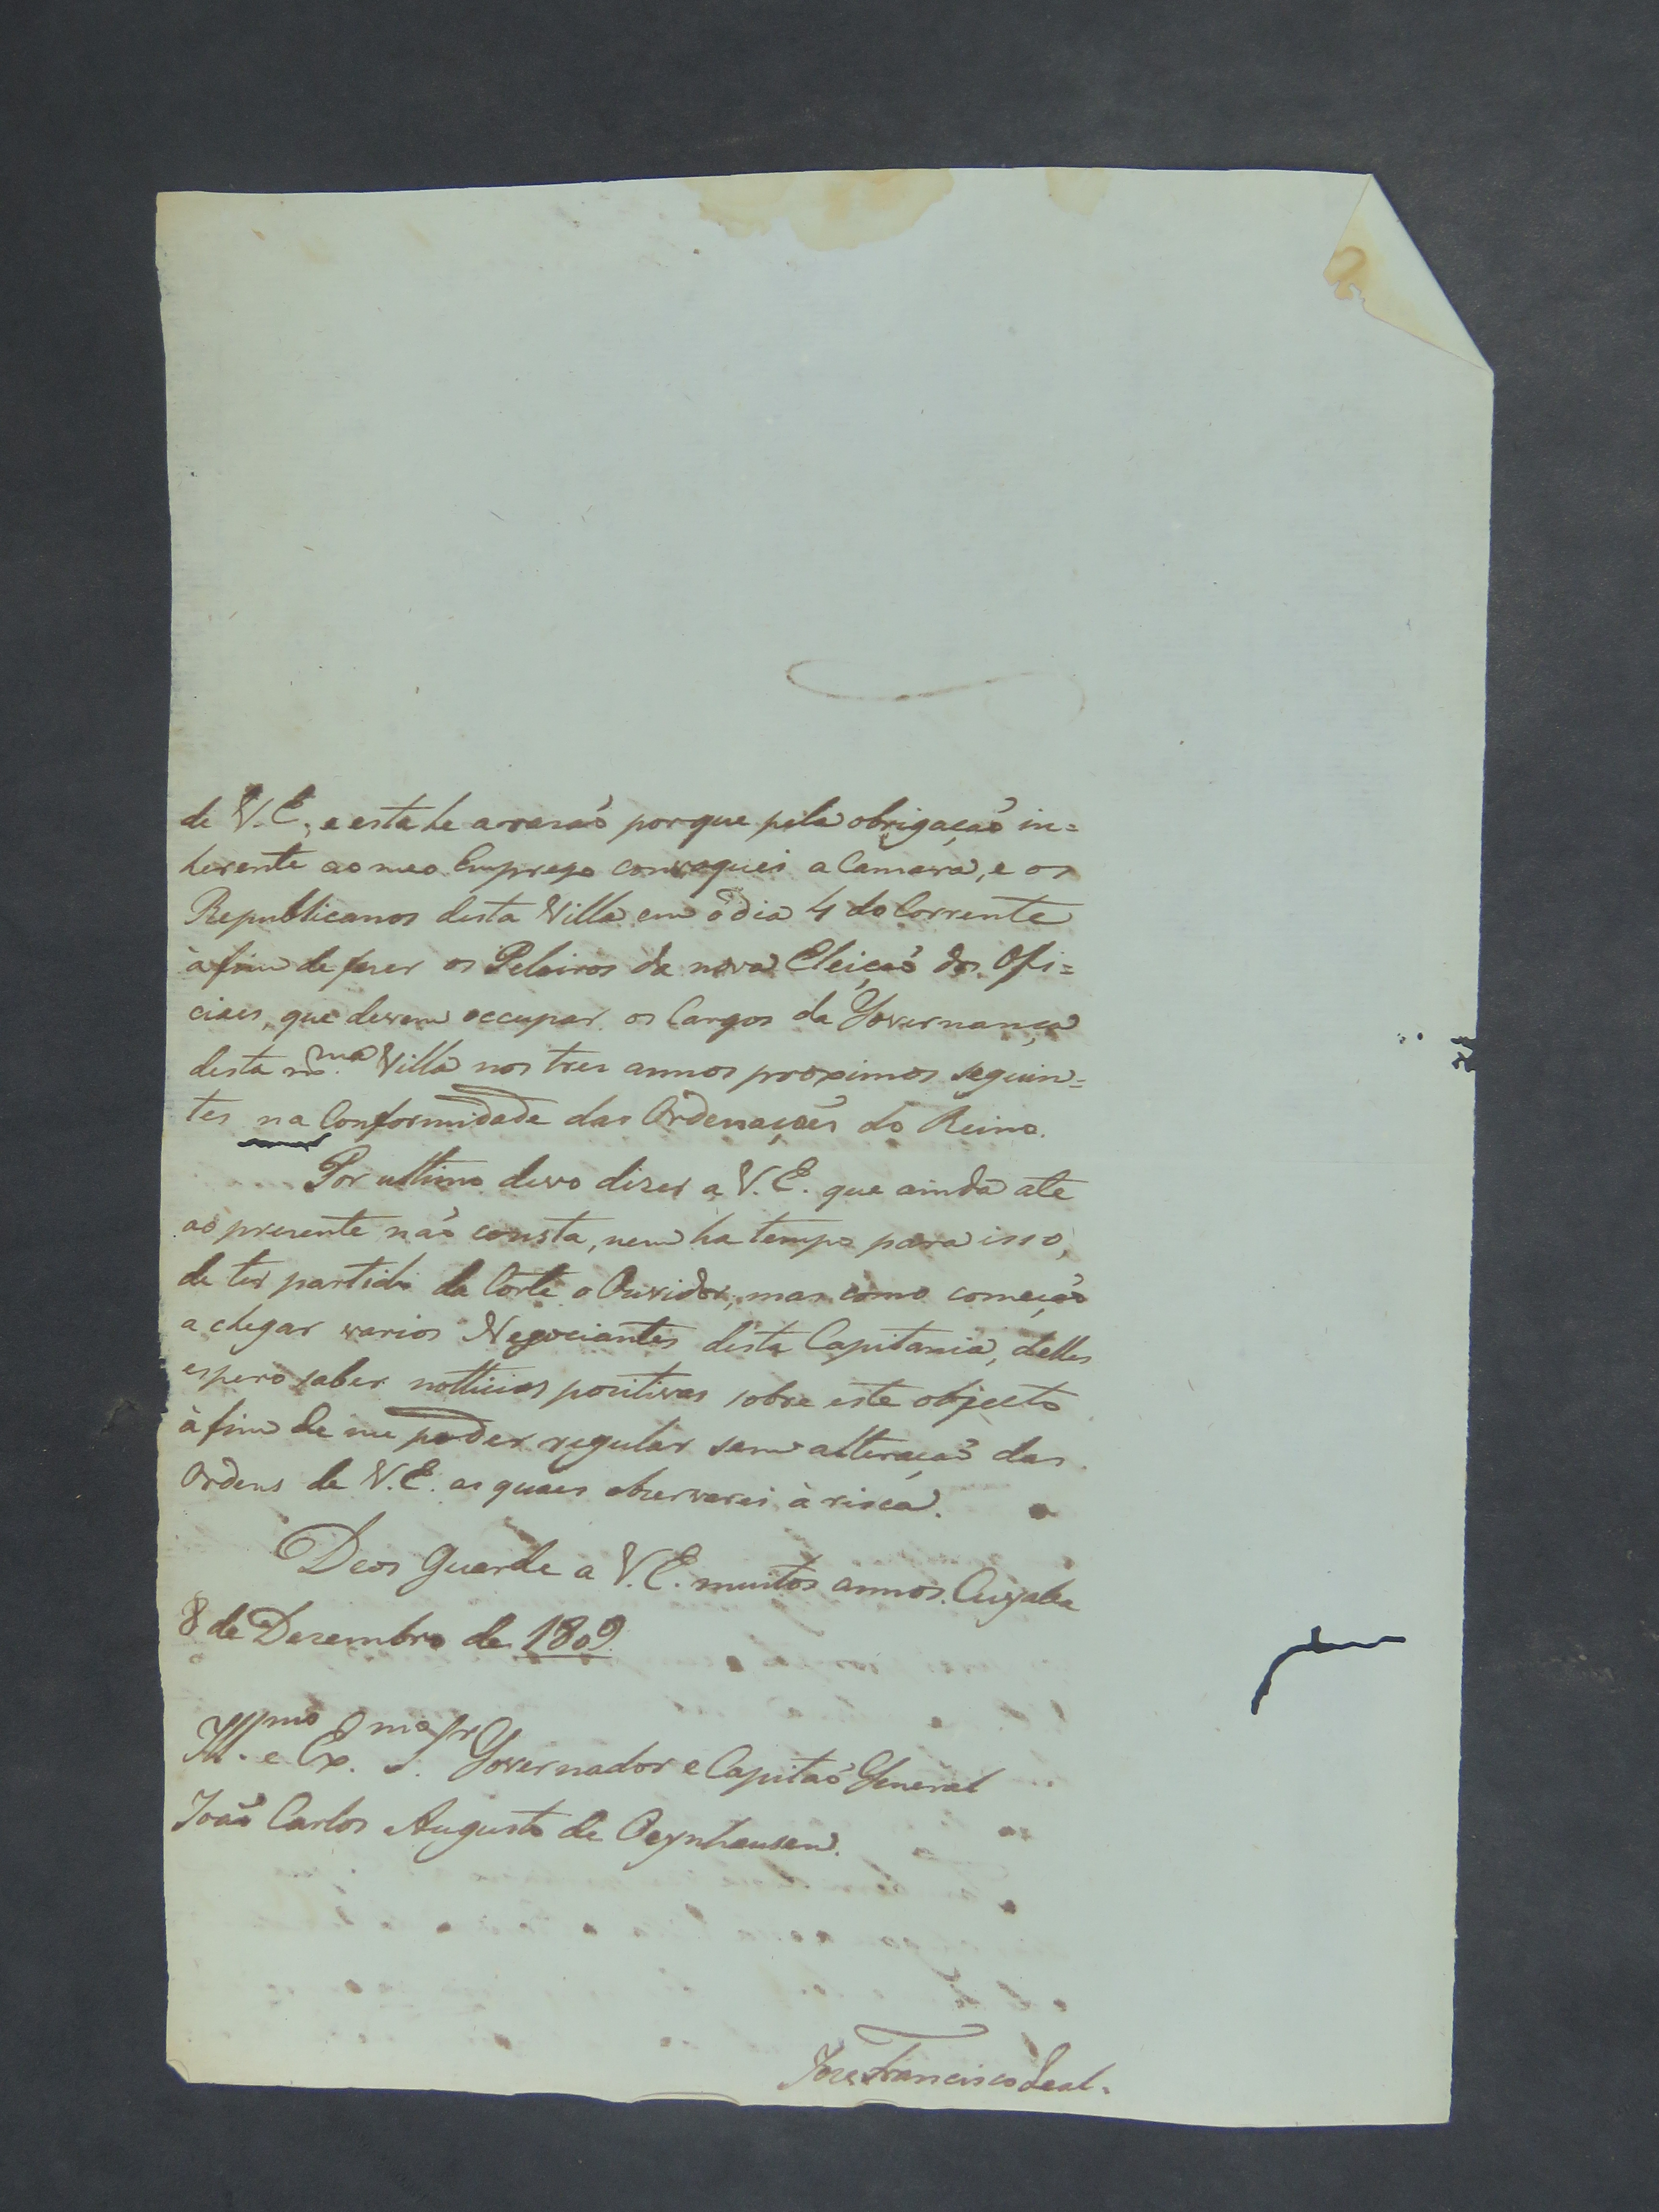 de V. E., e esta he arasaõ porque pela obrigaçaõ in=
herente ao meo Emprego convoquei a Camara, e os
Republicanos desta Villa em ò dia 4 do Corrente
à fim de faser os Peloiros da nova Eleiçaõ dos Ofi=
ciaes, que devem occupar os Cargos da Governança
desta m.ma Villa nos tres annos proximos seguin=
tes na Conformidade das Ordenaçoẽs do Reino.
Por ultimo devo diser a V. E. que ainda ate
ao presente naõ consta, nem ha tempo para isso,
de ter partido da Corte o Ouvidor, mas como começaõ
a chegar varios Negociantes desta Capitania, delles
espero saber notticias positivas sobre este objecto
à fim de me poder regular sem alteraçaõ das
Ordens de V. E. as quaes observarei à risca.
Deos Guarde a V. E. muitos annos. Cuyaba
8 de Desembro de 1809.
Ill.mo e Ex.mo S.r Governador e Capitaõ General
Joaõ Carlos Augusto de Oeynhausen.
Joze Francisco Leal.